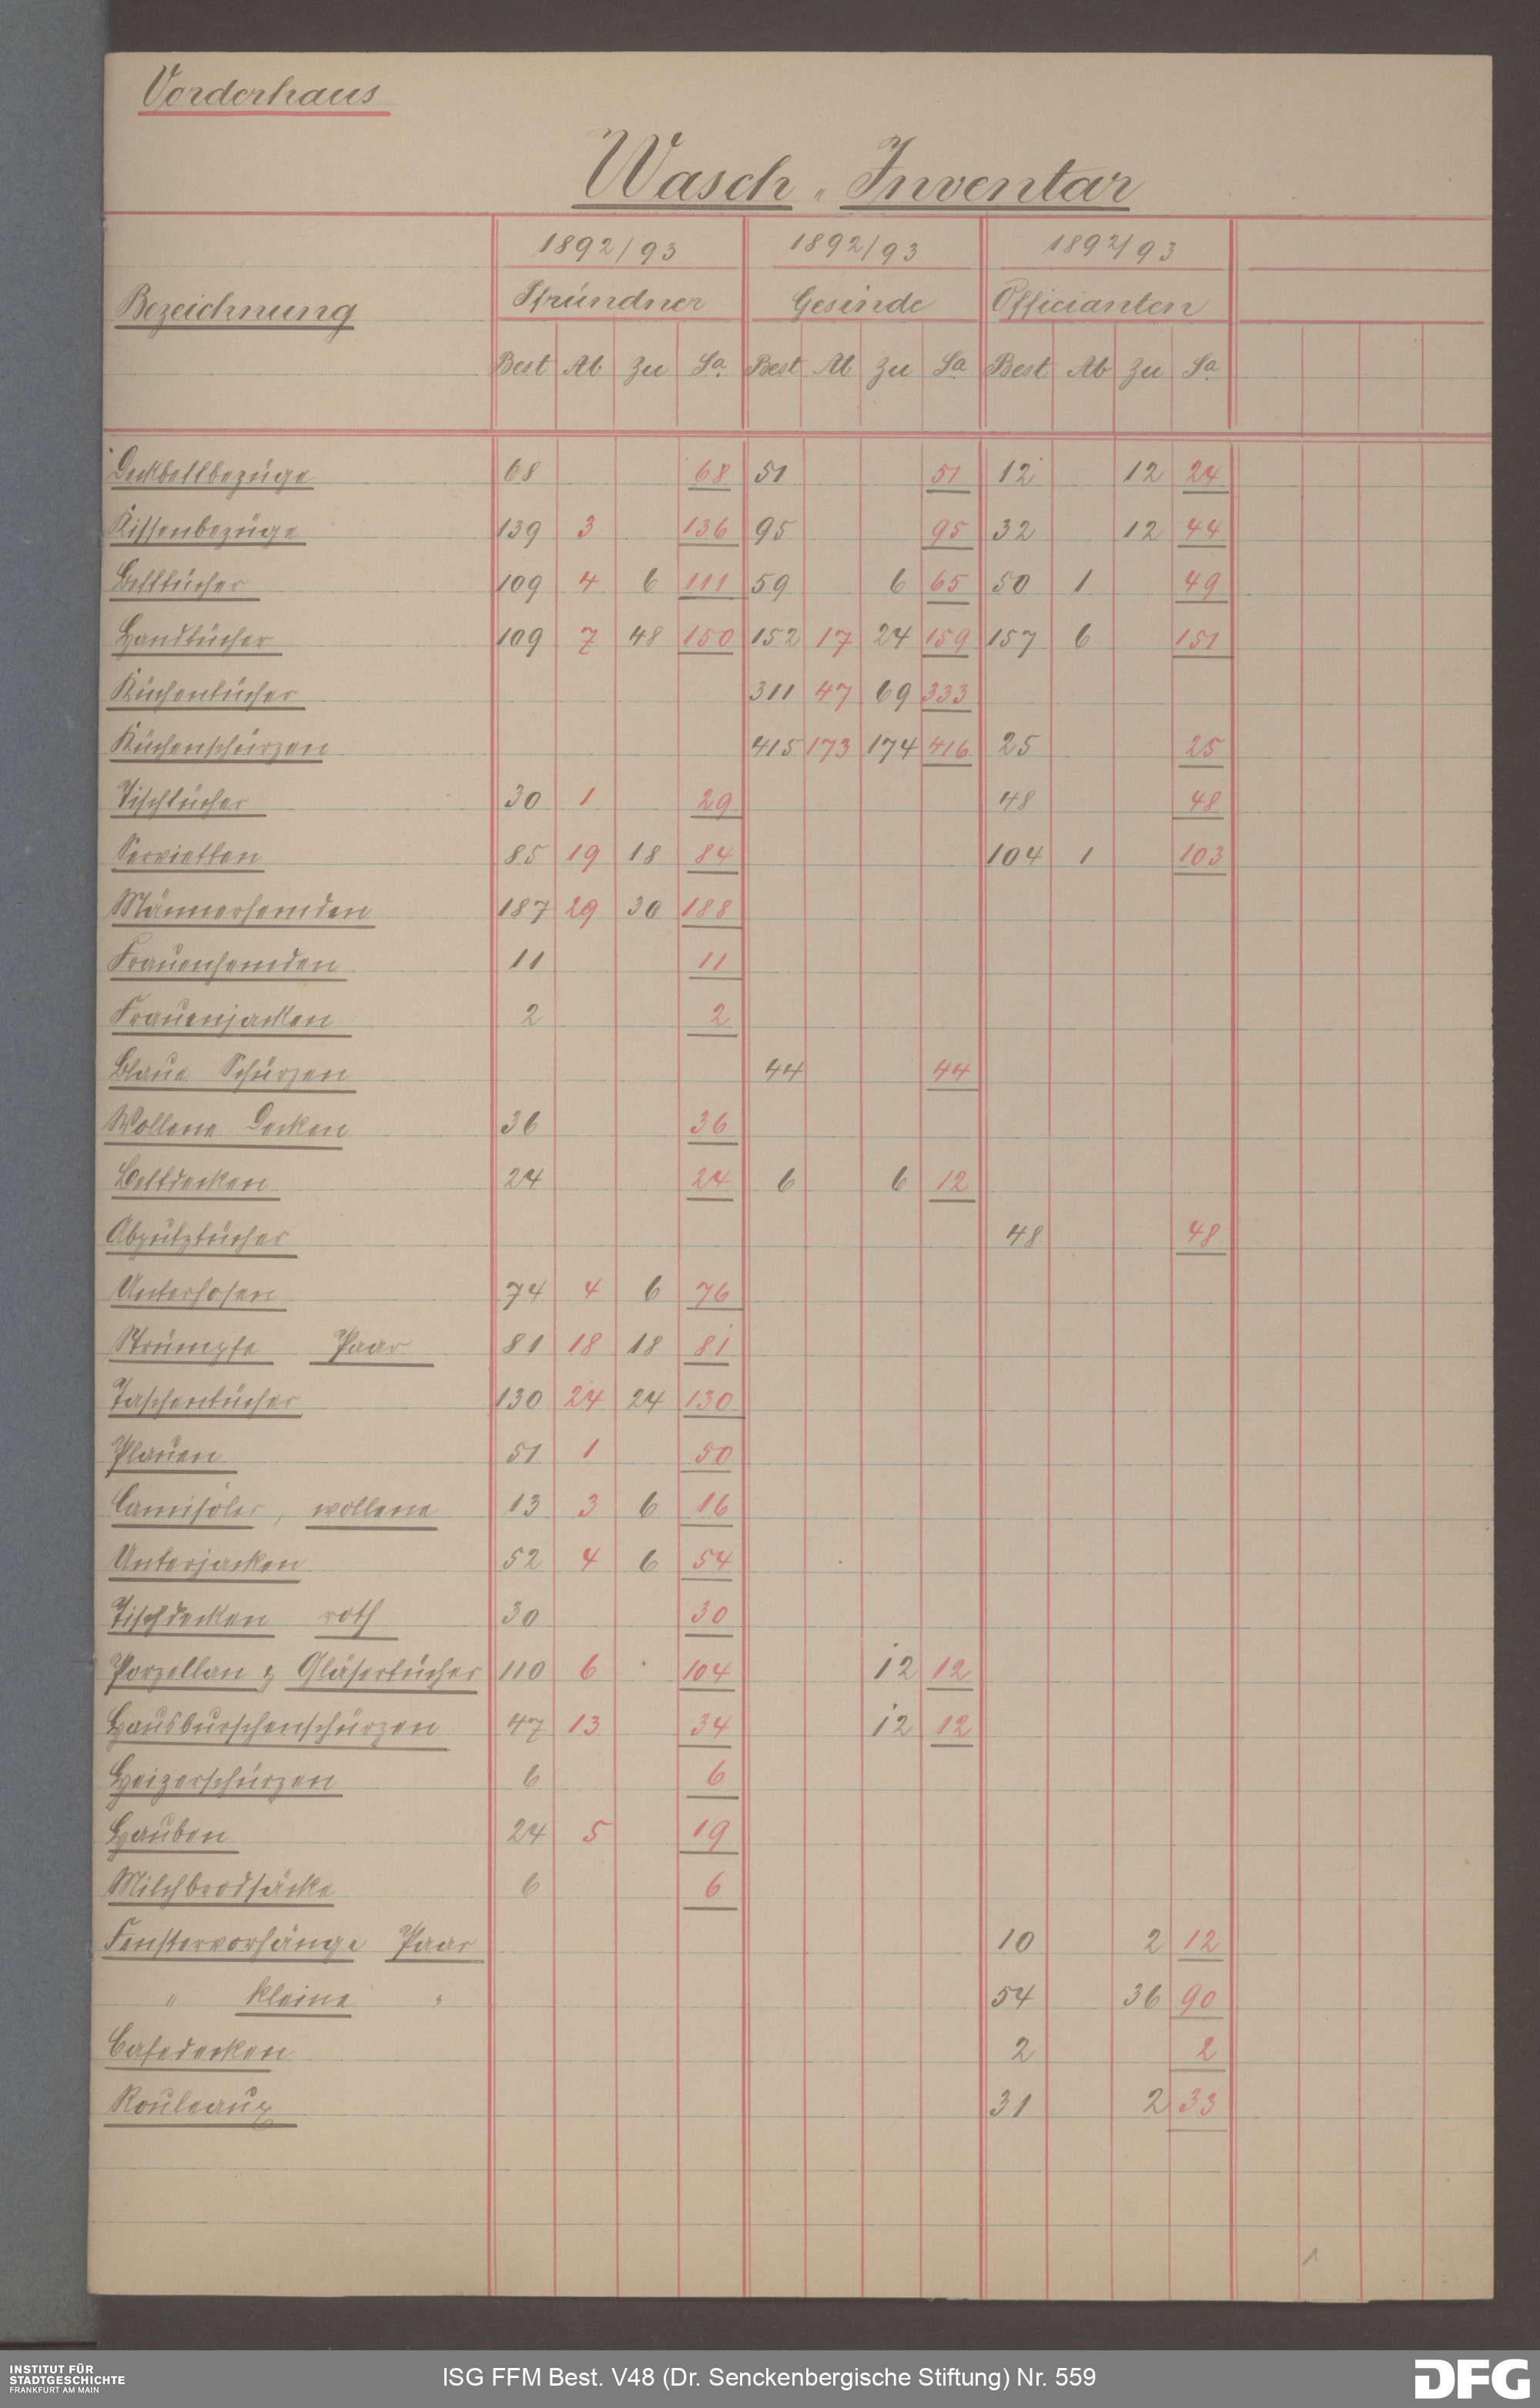 Vorderhaus
Wasch-Inventar
1892/93 1892/93 1892/93
Bezeichnung Pfründner Gesinde Officianten
Best Ab Zu Sa Best Ab Zu Sa Best Ab Zu Sa
Deckbettbezüge 68 68 51 51 12 12 24
Kissenbezüge 139 3 136 95 95 32 12 44
Betttücher 109 4 6 111 59 6 65 50 1 49
Handtücher 109 7 48 150 152 17 24 159 157 6 151
Küchentücher 311 47 69 333
Küchenschürzen 415 173 174 416 25 25
Tischtücher 30 1 29 48 48
Servietten 85 19 18 84 104 1 103
Männerhemden 187 29 30 188
Frauenhemden 11 11
Frauenjacken 2 2
Blaue Schürzen 44 44
Wollene Decken 36 36
Bettdecken 24 24 6 6 12
Abputztücher 48 48
Unterhosen 74 4 6 76
Strümpfe Paar 81 18 18 81
Taschentücher 130 24 24 130
Plauen 51 1 50
Camisoler, wollene 13 3 6 16
Unterjacken 52 4 6 54
Tischdecken roth 30 30
Porzellan & Gläsertücher 110 6 104 12 12
Hausburschenschürzen 47 13 34 12 12
Heizerschürzen 6 6
Hauben 24 5 19
Milchbrodsäcke 6 6
Fenstervorhänge Paar 10 2 12
" kleine " 54 36 90
Cafedecken 2 2
Rouleaux 31 2 33
1
INSTITUT FÜR
STADTGESCHICHTE
FRANKFURT AM MAIN
ISG FFM Best. V48 (Dr. Senckenbergische Stiftung) Nr. 559
DFG